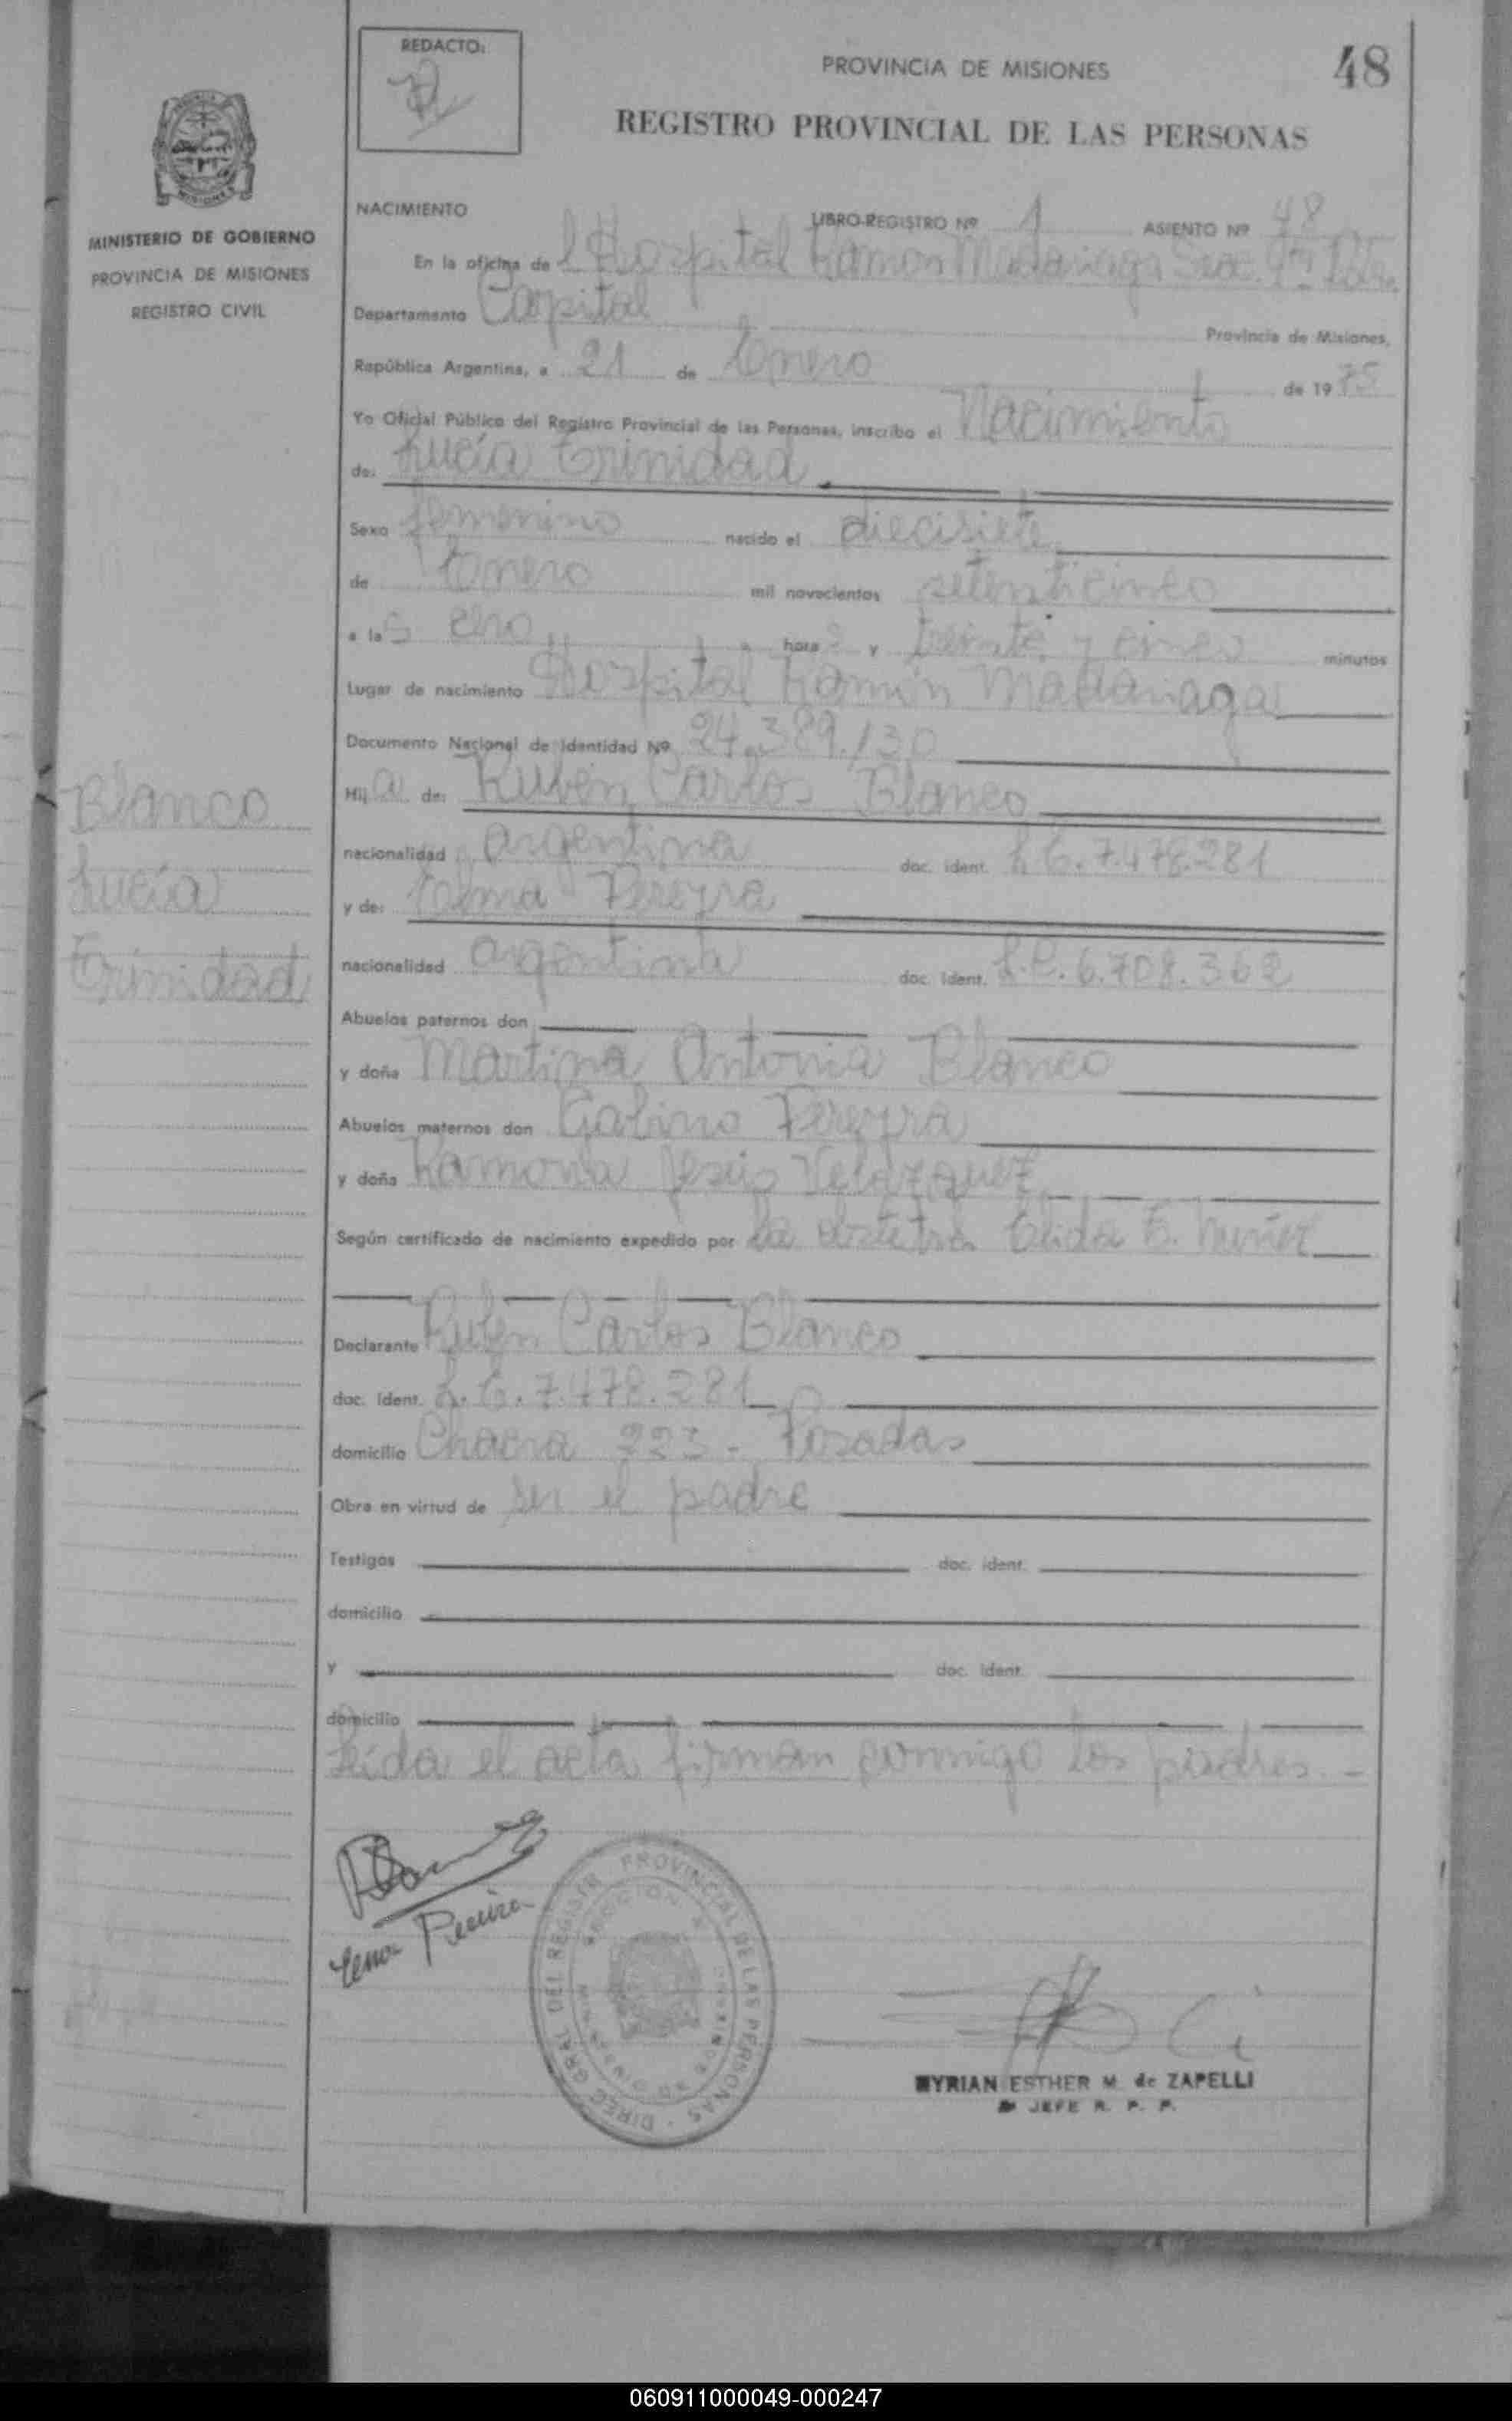 REDACTO:
PROVINCIA DE MISIONES
48
REGISTRO PROVINCIAL DE LAS PERSONAS
MINISTERIO DE GOBIERNO
PROVINCIA DE MISIONES
REGISTRO CIVIL
NACIMIENTO LIBRO-REGISTRO Nº 1 ASIENTO Nº 48
En la oficina de l Hospital Ramón Madariaga Secc. 9na
Departamento Capital Provincia de Misiones,
República Argentina, a 21 de Enero de 1975
Yo Oficial Público del Registro Provincial de las Personas, inscribo el Nacimiento
de: Lucía Trinidad
Sexo femenino nacido el diecisiete
de Enero mil novecientos setenticinco
a las cero horas y treinta y cinco minutos
Lugar de nacimiento Hospital Ramón Madariaga
Documento Nacional de Identidad Nº 24.389.130
Hija de: Rubén Carlos Blanco
nacionalidad argentina doc. ident. L.E. 7.478.281
y de: Telma Pereyra
nacionalidad argentina doc. ident. L.C. 6.708.362
Abuelos paternos don
y doña Martina Antonia Blanco
Abuelos maternos don Gabino Pereyra
y doña Ramona Jesús Velázquez
Según certificado de nacimiento expedido por la obstetra Elida E. Nuñez
Declarante Rubén Carlos Blanco
doc. ident. L.E. 7.478.281
domicilio Chacra 223 - Posadas
Obra en virtud de ser el padre
Testigos doc. ident.
domicilio
y doc. ident.
domicilio
Leida el acta firman conmigo los padres. -
Blanco
Lucía
Trinidad
DIREC. GRAL. DEL REGISTR. PROVINCIAL DE LAS PERSONAS
MYRIAN ESTHER M. de ZAPELLI
JEFE R. P. P.
060911000049-000247